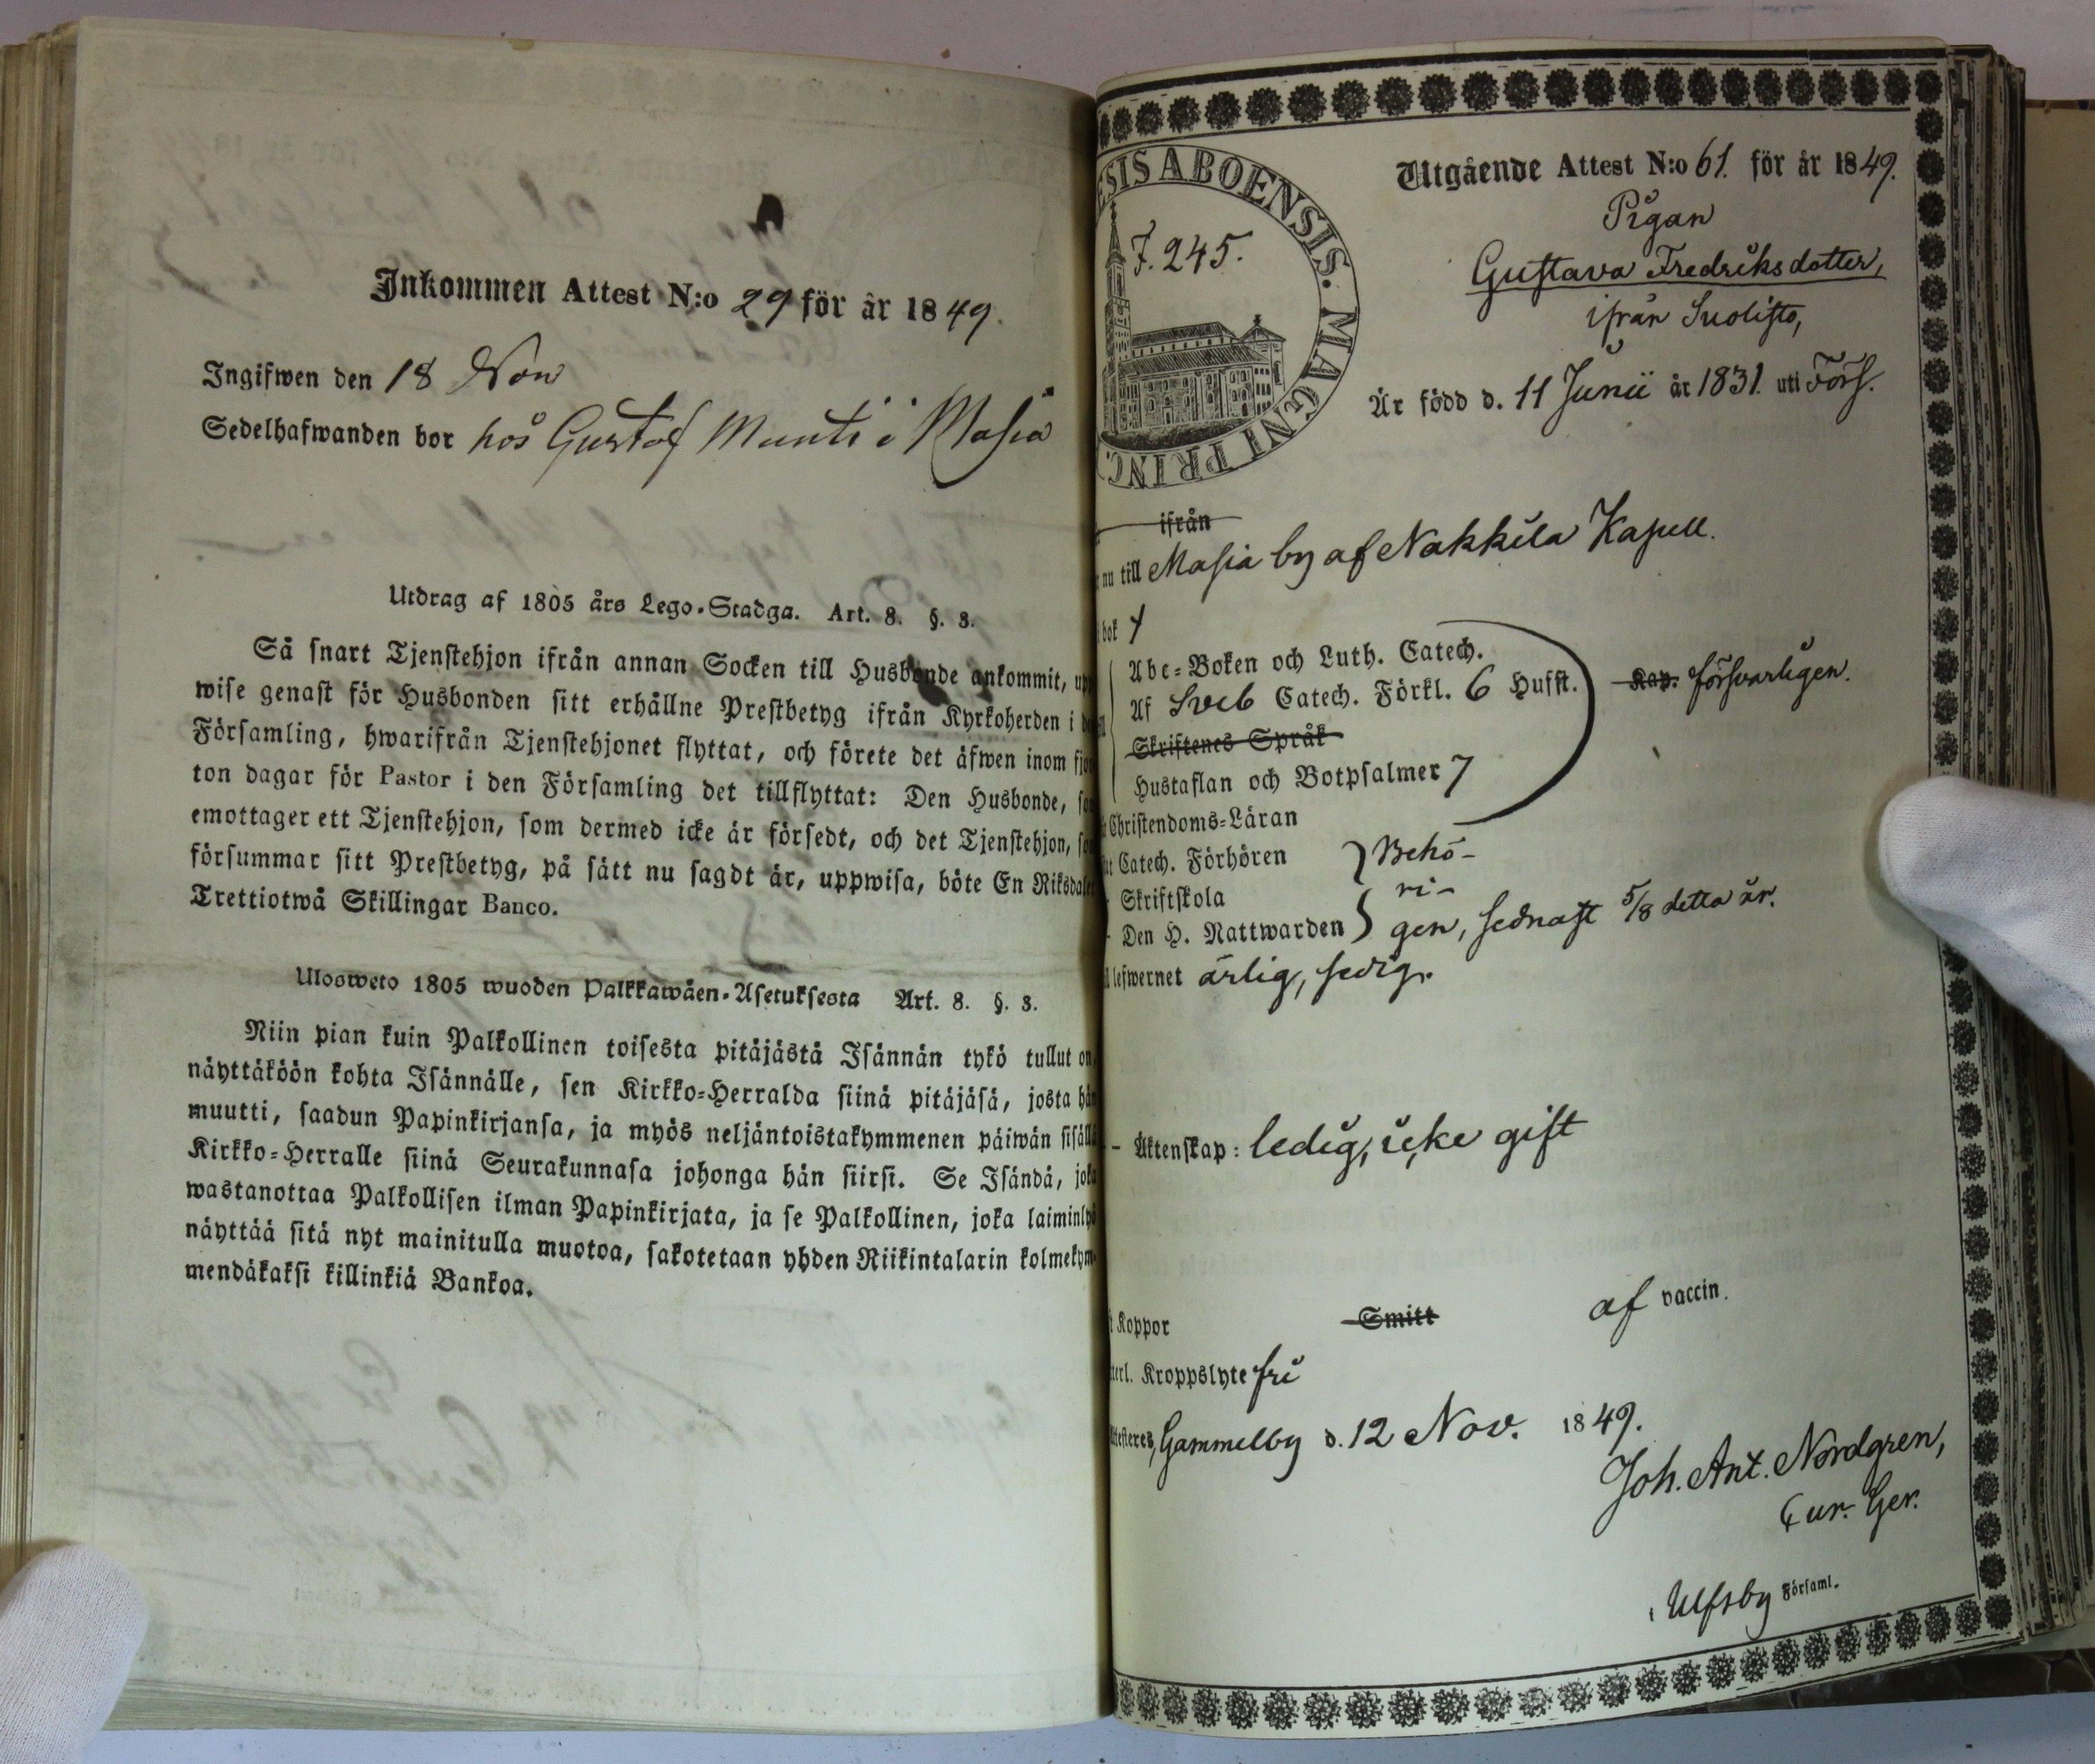 Inkommen Attest N:o 29 för år 1849.
Ingifwen den 18 Nov
Sedelhafwanden bor hos Gustaf Munti i Masia
Utdrag af 1805 års Lego-Stadga. Art. 8. §. 3.
Så snart Tjenstehjon ifrån annan Socken till Husbonde ankommit, upp
wise genast för Husbonden sitt erhållne Prestbetyg ifrån Kyrkoherden i
Församling, hwarifrån Tjenstehjonet flyttat, och förete det äfwen inom fjor
ton dagar för Pastor i den Församling det tillflyttat: Den Husbonde, so
emottager ett Tjenstehjon, som dermed icke är försedt, och det Tjenstehjon, so
försummar sitt Prestbetyg, på sätt nu sagdt är, uppwisa, böte En Riksdaler
Trettiotwå Skillingar Banco.
Ulosweto 1805 wuoden Palkkawäen-Asetuksesta Art. 8. §. 3.
Niin pian kuin Palkollinen toisesta pitäjästä Isännän tykö tullut on,
näyttäköön kohta Isännälle, sen Kirkko-Herralda siinä pitäjäsä, josta hän
muutti, saadun Papinkirjansa, ja myös neljäntoistakymmenen päiwän sisällä
Kirkko-Herralle siinä Seurakunnasa johonga hän siirsi. Se Isändä, joka
wastanottaa Palkollisen ilman Papinkirjata, ja se Palkollinen, joka laiminlyö
näyttää sitä nyt mainitulla muotoa, sakotetaan yhden Riikintalarin kolmekym-
mendäkaksi killinkiä Bankoa.
ESIS ABOENSIS. MAGNI PRINC.
F. 245.
Utgående Attest N:o 61. för år 1849.
Pigan
Gustava Fredriksdotter,
ifrån Suolisto,
Är född d. 11 Junii år 1831. uti Förs.
ifrån
nu till Masia by af Nakkila Kapell.
bok
Abc-Boken och Luth. Catech.
Af Sveb Catech. Förkl. 6 Hufst. Kap. försvarligen.
Skriftenes Språk
Hustaflan och Botpsalmer 7
Christendoms-Läran
Catech. Förhören Behö-
Skriftskola ri-
Den H. Nattwarden gen, sednast 5/8 detta år.
lefwernet ärlig, sedig.
- Äktenskap: ledig, icke gift
Koppor Smitt af vaccin.
terl. Kroppslyte fri
Attesteres, Gammelby d. 12 Nov. 1849.
Joh. Ant. Nordgren,
Cur. Ger.
i Ulfsby Församl.